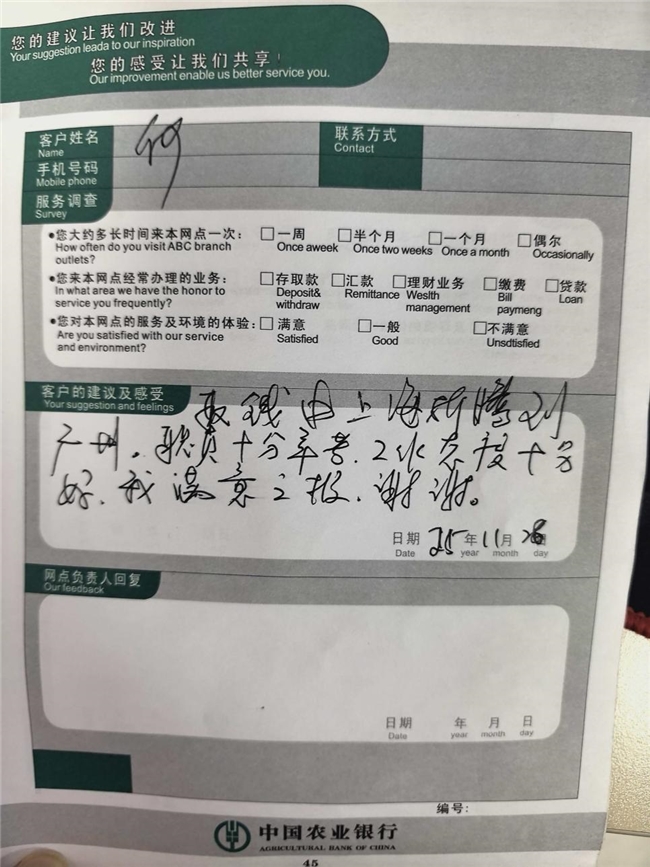 您的建议让我们改进
Your suggestion leada to our inspiration
您的感受让我们共享！
Our improvement enable us better service you.
客户姓名
Name
何
联系方式
Contact
手机号码
Mobile phone
服务调查
Survey
●您大约多长时间来本网点一次： □一周 □半个月 □一个月 □偶尔
How often do you visit ABC branch Once aweek Once two weeks Once a month Occasionally
outlets?
●您来本网点经常办理的业务： □存取款 □汇款 □理财业务 □缴费 □贷款
In what area we have the honor to Deposit& Remittance Weslth Bill Loan
service you frequently? withdraw management paymeng
●您对本网点的服务及环境的体验：□ 满意 □一般 □不满意
Are you satisfied with our service Satisfied Good Unsdtisfied
and environment?
客户的建议及感受
Your suggestion and feelings
取钱由上海折腾到
广州。职员十分辛苦、工作态度十分
好、我满意之极、谢谢。
日期 25年11月28日
Date year month day
网点负责人回复
Our feedback
日期 年 月 日
Date year month day
编号：
中国农业银行
AGRICULTURAL BANK OF CHINA
45